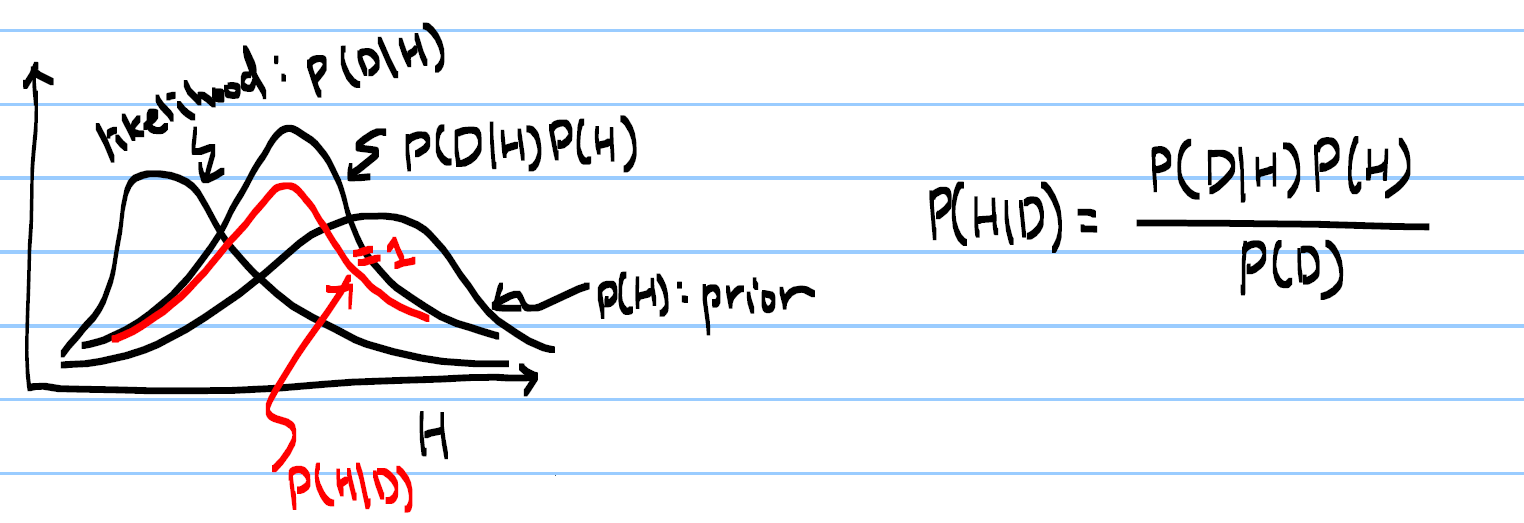 likelihood: P(D|H)
P(D|H)P(H)
= 1
P(H): prior
H
P(H|D)
P(H|D) = P(D|H)P(H) / P(D)